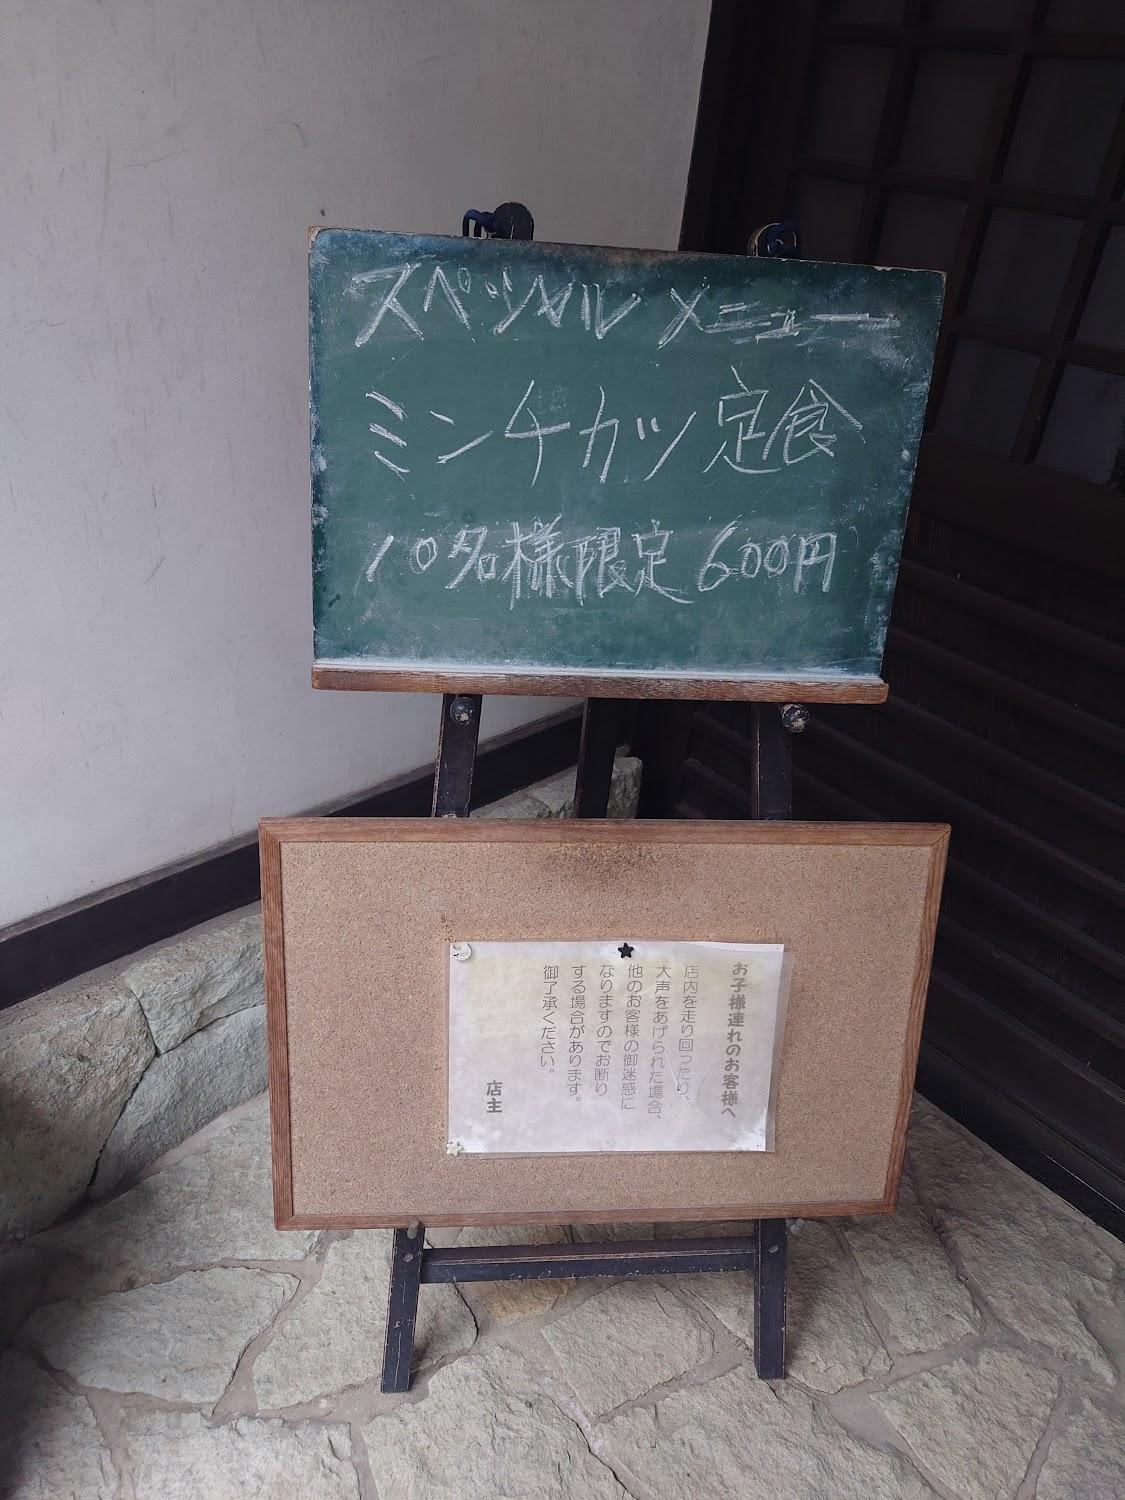 スペシャル メニュー
ミンチカツ定食
10名様限定 600円
お子様連れのお客様へ
店内を走り回ったり、
大声をあげられた場合、
他のお客様の御迷惑に
なりますのでお断り
する場合があります。
御了承ください。
店主